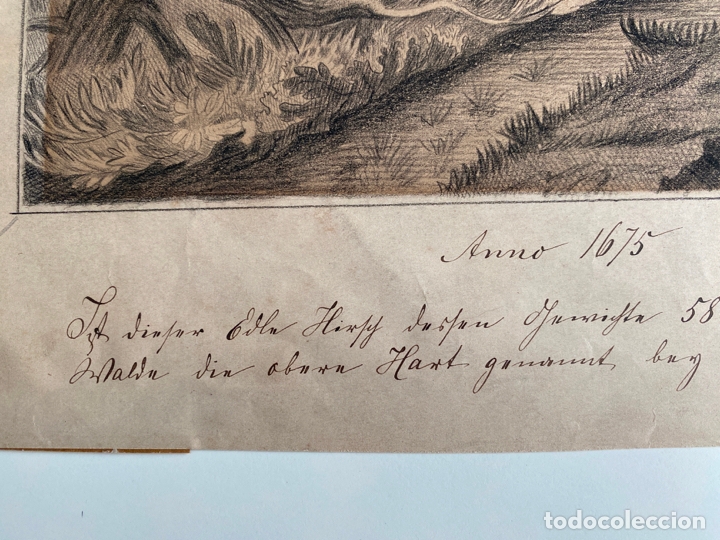 Anno 1675
Ist dieser Edle Hirsch dessen Gewichte 58
Walde die obere Hart genannt, bey
todocoleccion.net